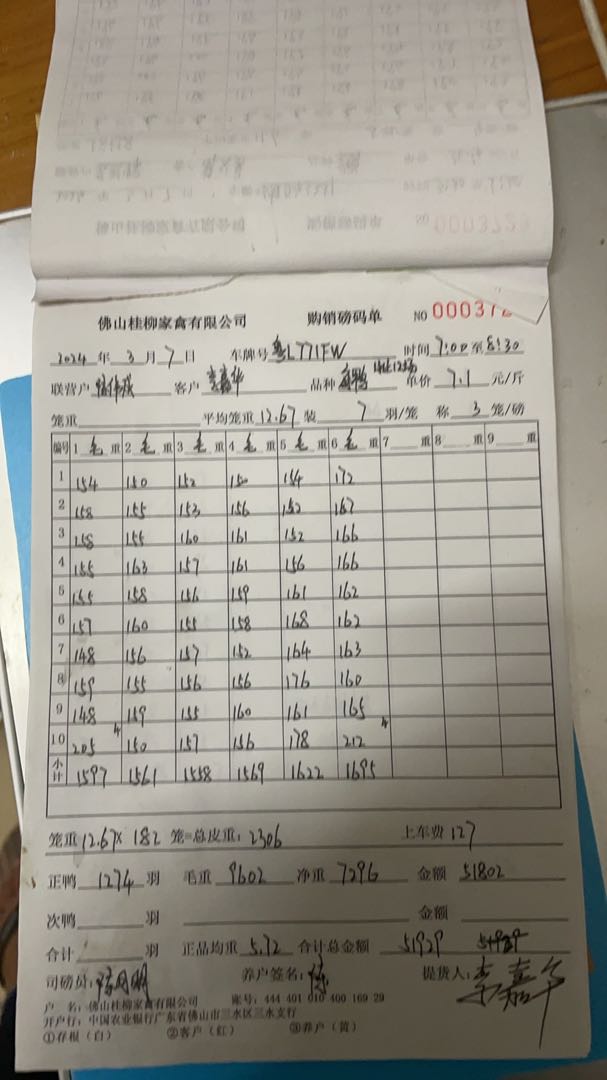 NO 0003723
佛山桂柳家禽有限公司 购销磅码单 NO 00037
2024 年 3 月 7 日 车牌号 粤L771FW 时间 7:00 至 8:30
联营户 客户 李嘉华 品种 单价 7.1 元/斤
笼重 平均笼重 12.67 装 7 羽/笼 称 3 笼/磅
编号 1 毛 重 2 毛 重 3 毛 重 4 毛 重 5 毛 重 6 毛 重 7 重 8 重 9 重
1 154 150 152 150 154 172
2 158 155 153 156 152 167
3 158 155 160 161 152 166
4 155 163 157 161 156 166
5 155 158 156 159 161 162
6 157 160 155 158 168 162
7 148 156 157 152 164 163
8 159 155 156 156 176 160
9 148 159 155 160 161 165
10 205 4 150 157 156 178 212 4
小计 1597 1561 1558 1569 1622 1695
笼重 12.67× 182 笼=总皮重: 2306 上车费 127
正鸭 1274 羽 毛重 9602 净重 7296 金额 51802
次鸭 羽 金额
合计 羽 正品均重 5.72 合计总金额 51929
司磅员: 养户签名: 提货人: 李嘉华
户 名: 佛山桂柳家禽有限公司 账号: 444 401 010 400 169 29
开户行: 中国农业银行广东省佛山市三水区三水支行
①存根(白) ②客户(红) ③养户(黄)